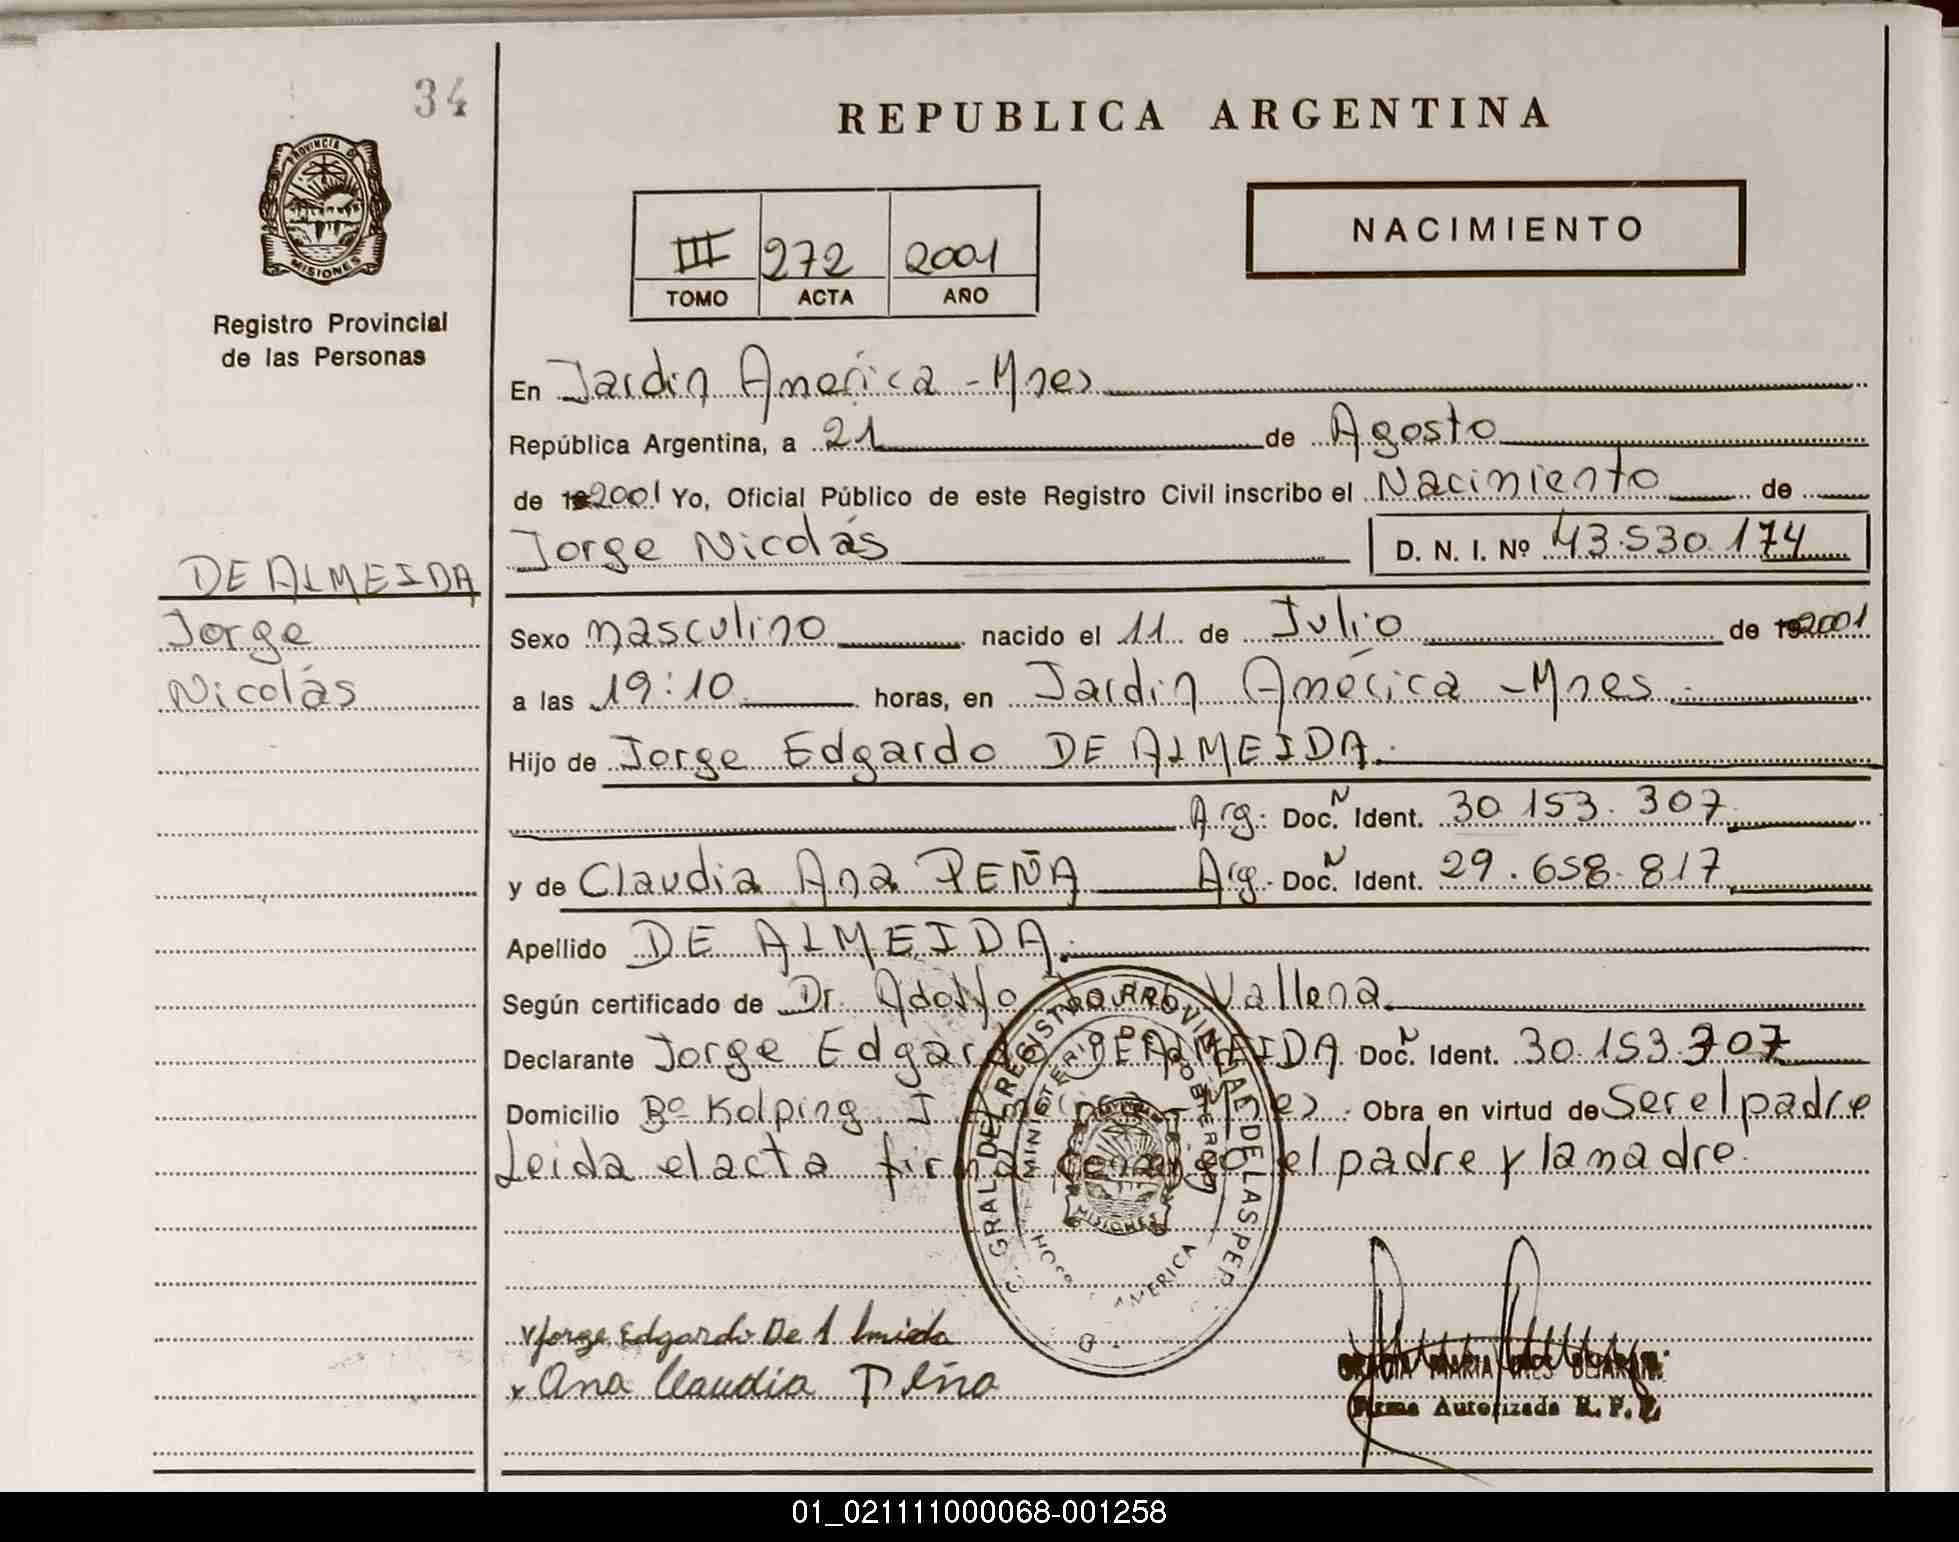 34
REPUBLICA ARGENTINA
PROVINCIA DE
MISIONES
Registro Provincial
de las Personas
III 272 2001
TOMO ACTA AÑO
NACIMIENTO
En Jardin America - Mnes
República Argentina, a 21 de Agosto
de 19 2001 Yo, Oficial Público de este Registro Civil inscribo el Nacimiento de
Jorge Nicolás D. N. I. Nº 43.530.174
DE ALMEIDA
Jorge
Nicolás
Sexo masculino nacido el 11 de Julio de 19 2001
a las 19:10 horas, en Jardin América - Mnes
Hijo de Jorge Edgardo DE ALMEIDA.
Arg. Doc. N Ident. 30.153.307
y de Claudia Ana PEÑA Arg. Doc. N Ident. 29.658.817
Apellido DE ALMEIDA.
Según certificado de Dr. Adolfo Vallena
Declarante Jorge Edgardo DE ALMEIDA Doc. N Ident. 30.153.307
Domicilio Bº Kolping. Obra en virtud de Ser el padre
Leida el acta firma conmigo el padre y la madre.
GRAL. DEL REGISTRO PROVINCIAL DE LAS PER
MINISTERIO DE GOBIERNO
MISIONES
AMERICA
x Jorge Edgardo De Almieda
x Ana Claudia Peña
MARIA
Firma Autorizada R. P. P.
01_021111000068-001258